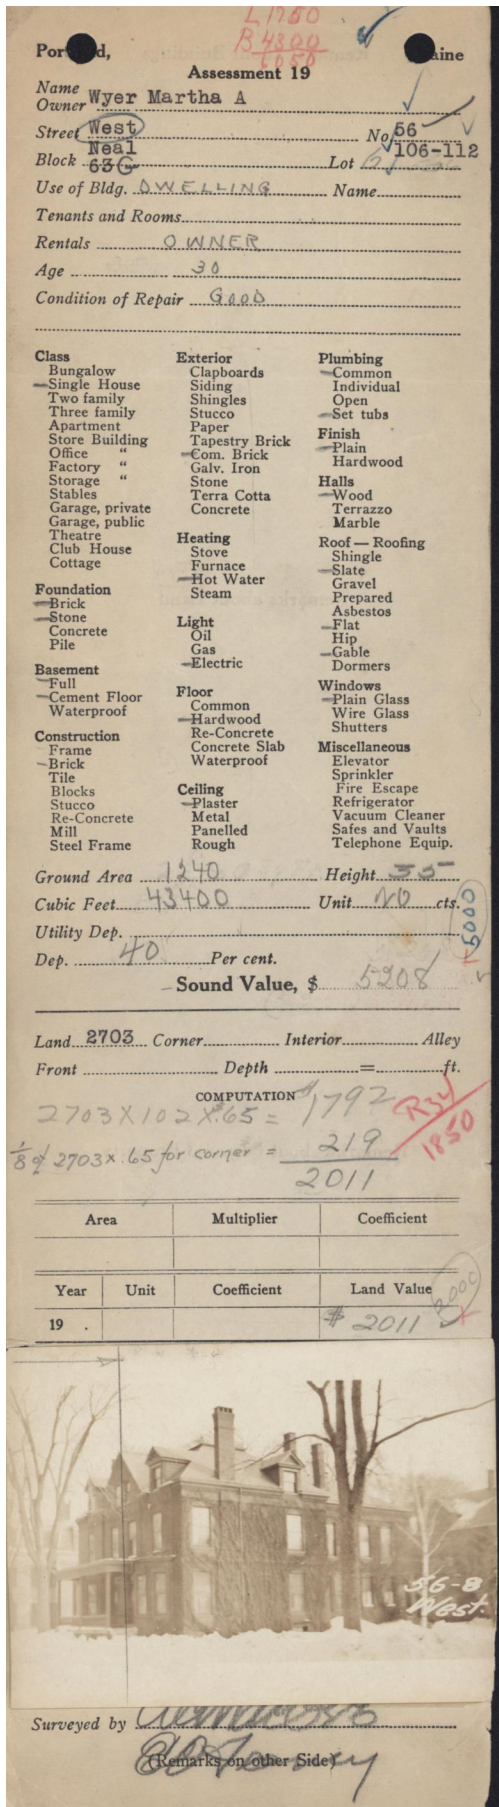 L1750
B4300
6050
Portland, Maine
Assessment 19
Name
Owner Wyer Martha A
Street West No. 56
Neal 106-112
Block 63G Lot
Use of Bldg. DWELLING Name
Tenants and Rooms
Rentals OWNER
Age 30
Condition of Repair GOOD
Class
Bungalow
Single House
Two family
Three family
Apartment
Store Building
Office "
Factory "
Storage "
Stables
Garage, private
Garage, public
Theatre
Club House
Cottage
Foundation
Brick
Stone
Concrete
Pile
Basement
Full
Cement Floor
Waterproof
Construction
Frame
Brick
Tile
Blocks
Stucco
Re-Concrete
Mill
Steel Frame
Exterior
Clapboards
Siding
Shingles
Stucco
Paper
Tapestry Brick
Com. Brick
Galv. Iron
Stone
Terra Cotta
Concrete
Heating
Stove
Furnace
Hot Water
Steam
Light
Oil
Gas
Electric
Floor
Common
Hardwood
Re-Concrete
Concrete Slab
Waterproof
Ceiling
Plaster
Metal
Panelled
Rough
Plumbing
Common
Individual
Open
Set tubs
Finish
Plain
Hardwood
Halls
Wood
Terrazzo
Marble
Roof — Roofing
Shingle
Slate
Gravel
Prepared
Asbestos
Flat
Hip
Gable
Dormers
Windows
Plain Glass
Wire Glass
Shutters
Miscellaneous
Elevator
Sprinkler
Fire Escape
Refrigerator
Vacuum Cleaner
Safes and Vaults
Telephone Equip.
Ground Area 1240 Height 35
Cubic Feet 43400 Unit 20 cts.
Utility Dep.
5000
Dep. 40 Per cent.
Sound Value, $ 5208
Land 2703 Corner Interior Alley
Front Depth = ft.
COMPUTATION
2703 X 102 X .65 = $1792
R34
1850
1/8 of 2703 x .65 for corner = 219
2011
Area Multiplier Coefficient
Year Unit Coefficient Land Value
2000
19 . $ 2011
56-8
West.
Surveyed by
(Remarks on other Side)